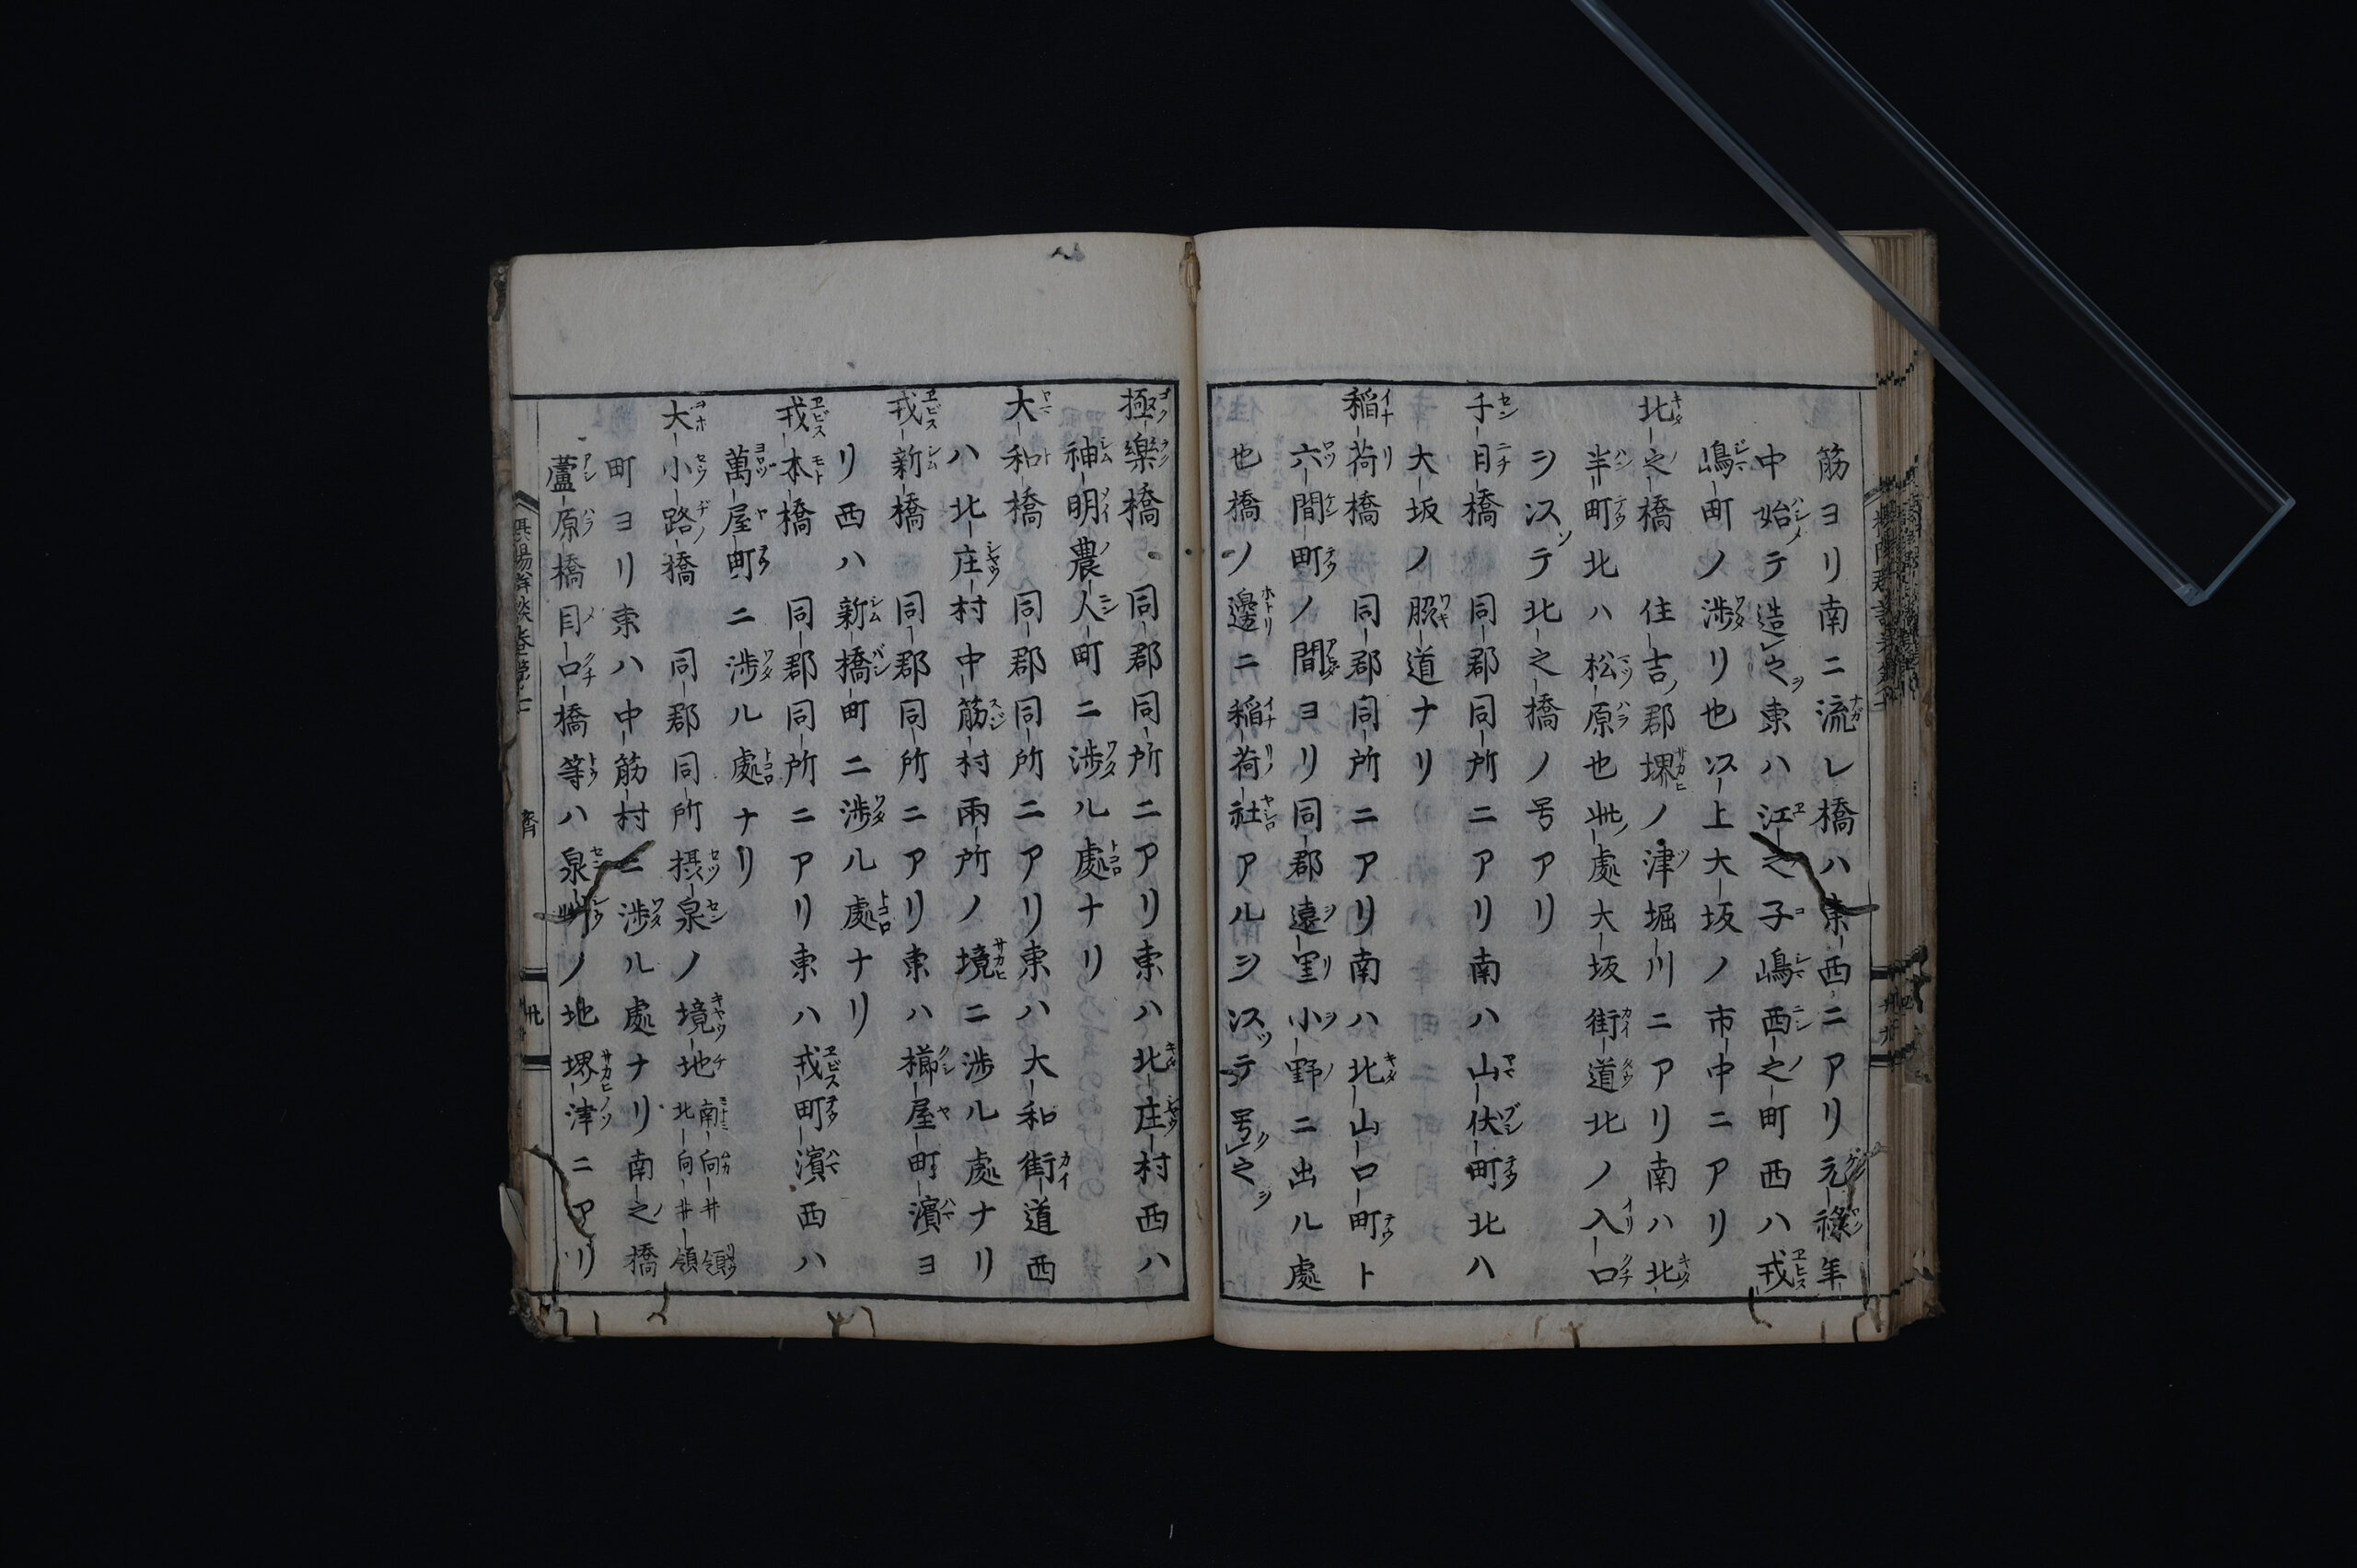 筋ヨリ南ニ流レ橋ハ東西ニアリ元禄年
中始テ造之東ハ江之子嶋西之町西ハ戎
嶋町ノ渉リ也以上大坂ノ市中ニアリ
北之橋 住吉郡堺ノ津堀川ニアリ南ハ北
半町北ハ松原也此處大坂街道北ノ入口
ヲ以テ北之橋ノ号アリ
千日橋 同郡同所ニアリ南ハ山伏町北ハ
大坂ノ脇道ナリ
稲荷橋 同郡同所ニアリ南ハ北山口町ト
六間町ノ間ヨリ同郡遠里小野ニ出ル處
也橋ノ邊ニ稲荷社アルヲ以テ号之
極樂橋 同郡同所ニアリ東ハ北庄村西ハ
神明農人町ニ渉ル處ナリ
大和橋 同郡同所ニアリ東ハ大和街道西
ハ北庄村中筋村兩所ノ境ニ渉ル處ナリ
戎新橋 同郡同所ニアリ東ハ櫛屋町濱ヨ
リ西ハ新橋町ニ渉ル處ナリ
戎本橋 同郡同所ニアリ東ハ戎町濱西ハ
萬屋町ニ渉ル處ナリ
大小路橋 同郡同所摂泉ノ境地南向井領北向井領
町ヨリ東ハ中筋村ニ渉ル處ナリ南之橋
蘆原橋目口橋等ハ泉州ノ地堺津ニアリ